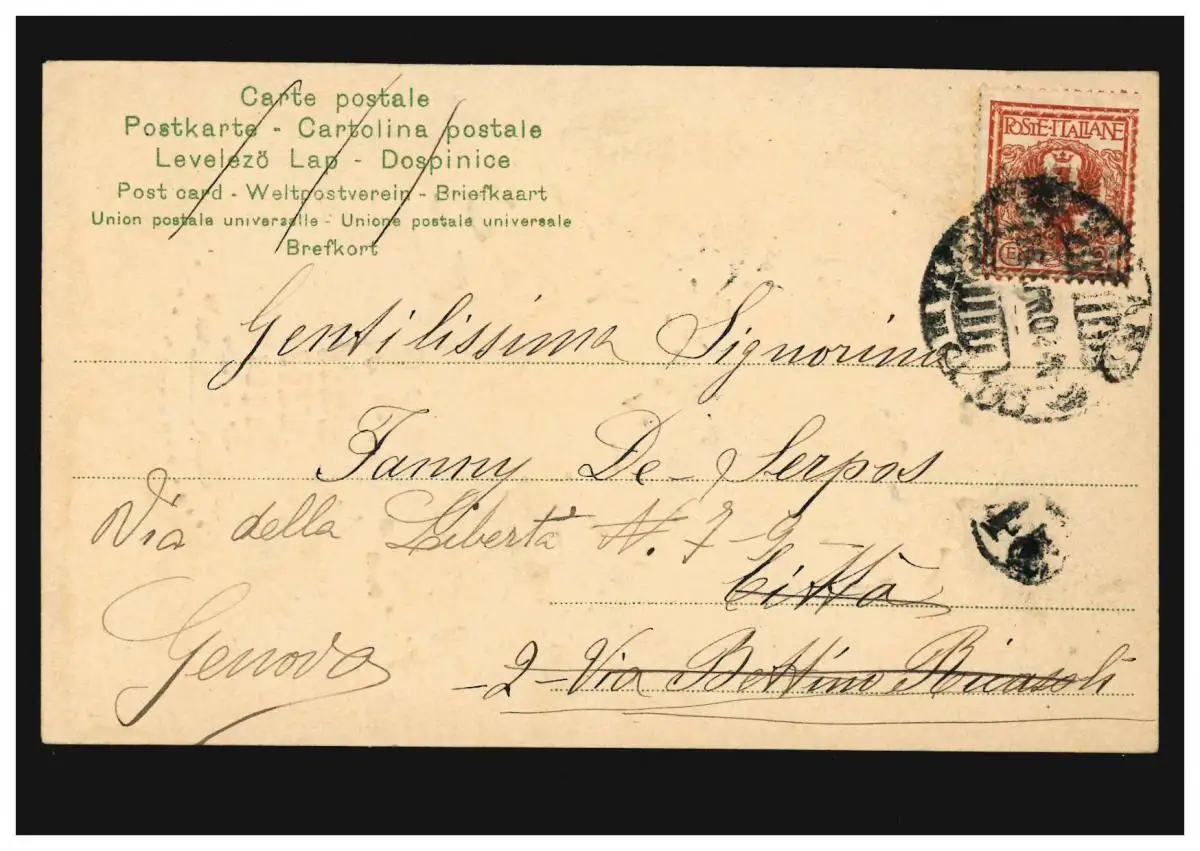 Carte postale
Postkarte - Cartolina postale
Levelező Lap - Dospinice
Post card - Weltpostverein - Briefkaart
Union postale universelle - Unione postale universale
Brefkort
POSTE·ITALIANE
Gentilissima Signorina
Fanny De-Serpos
Via della Libertà N. 7-9-
Città
Genova
-2-Via Bettino Ricasoli